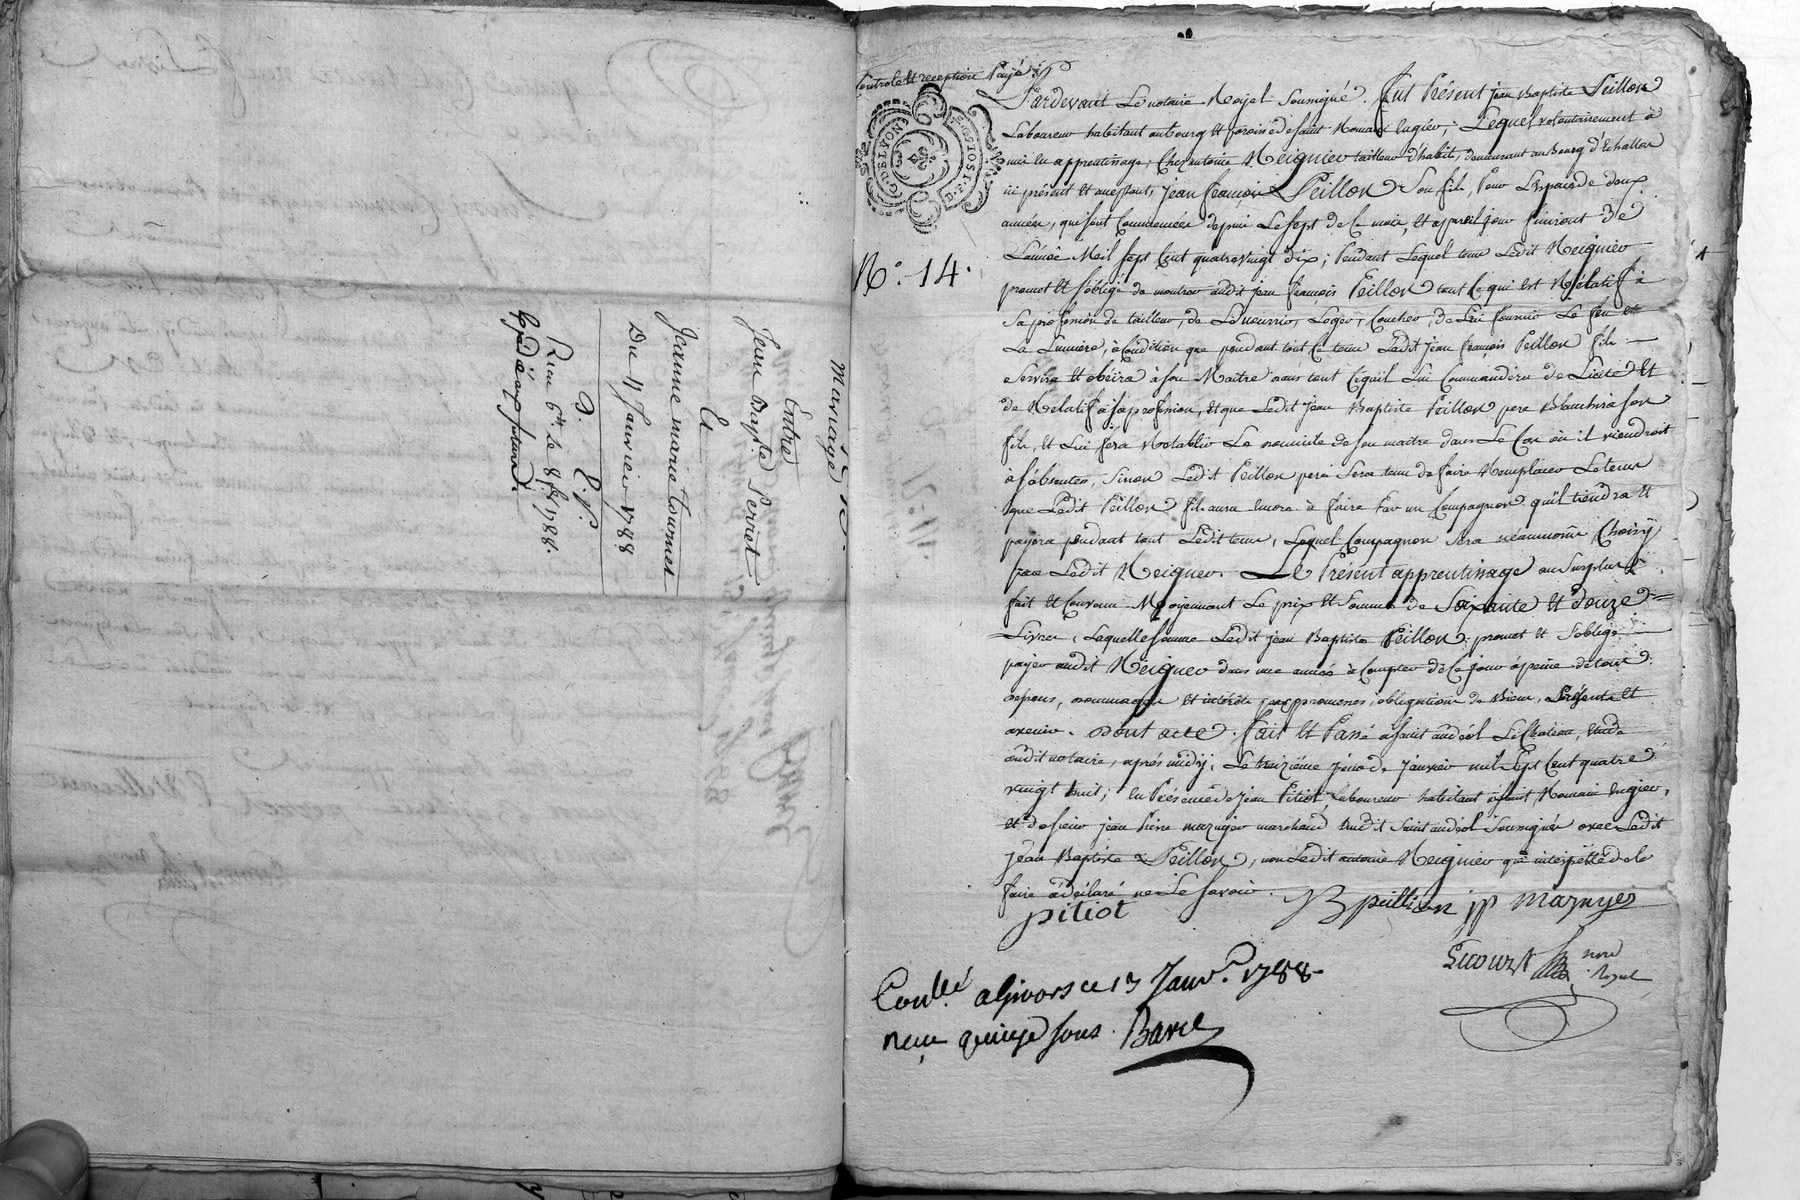 Mariage
Entre
Jean Bap.te Perret
Et
Jeanne marie tournet
Du 11 Janvier 1788
Reçu 6tt le 8
Controle et reception Payé
G. DE LYON
N.o 14.
Pardevant Le notaire Royal Soussigné. fut Présent jean Baptiste Peillon
Laboureur habitant au bourg et paroisse de saint Romain Engier, Lequel volontairement à
mis en apprentissage, Chez antoine Reignier tailleur d'habit, demeurant au Bourg d'Echallas
ici présent et acceptant, jean françois Peillon Son fils, Pour L'espace de deux
années, qui sont Commencées depuis Le sept de Ce mois, et a pareil jour finiront de
L'année Mil sept Cent quatrevingt dix; Pendant Lequel tems Ledit Reignier
promet et s'oblige de montrer audit jean françois Peillon tout Ce qui est Rélatif à
Sa profession de tailleur, de Le nourrir, Loger, Coucher, de Lui fournir Le feu et
La Lumiere, à Condition que pendant tout Ce tems Ledit jean françois Peillon fils
Servira et obéira à son Maitre dans tout Ce qu'il Lui Commandera de Licite et
de Relatif à sa profession, et que Ledit jean Baptiste Peillon pere Blanchira son
fils, et Lui fera Rétablir Le domicile de son maitre dans Le Cas où il viendroit
à s'absenter, Sinon Ledit Peillon pere Sera tenu de faire Remplacer Le tems
que Ledit Peillon fils aura encore à faire Par un Compagnon qu'il tiendra et
payera pendant tout Ledit tems, Lequel Compagnon sera néanmoins Choisy
par Ledit Reigner. Le Présent apprentissage au Surplus
fait et Convenu Moyennant Le prix et Somme de Soixante et douze
Livres, Laquelle somme Ledit jean Baptiste Peillon promet et s'oblige
payer audit Reigner dans une année à Compter de Ce jour à peine de tous
depens, dommages et intérêts par promesses, obligations de Biens, Présents et
avenir. dont acte. fait et Passé à saint andéol Le Château, Etude
dudit notaire, après midy, Le treizième jour de janvier mil sept Cent quatre
vingt huit; En Présence de jean Pitiot, Laboureur habitant à saint Romain Engier,
et de sieur jean Pierre mazuyer marchand dudit Saint andéol Soussignés avec Ledit
jean Baptiste Peillon, non Ledit antoine Reignier qui interpellé de le
faire à déclaré ne Le savoir.
pitiot JB peillion jp mazuyer
nore
Royal
Conllé a Givors ce 13 Janv.r 1788.
reçu quinze sous. Barel